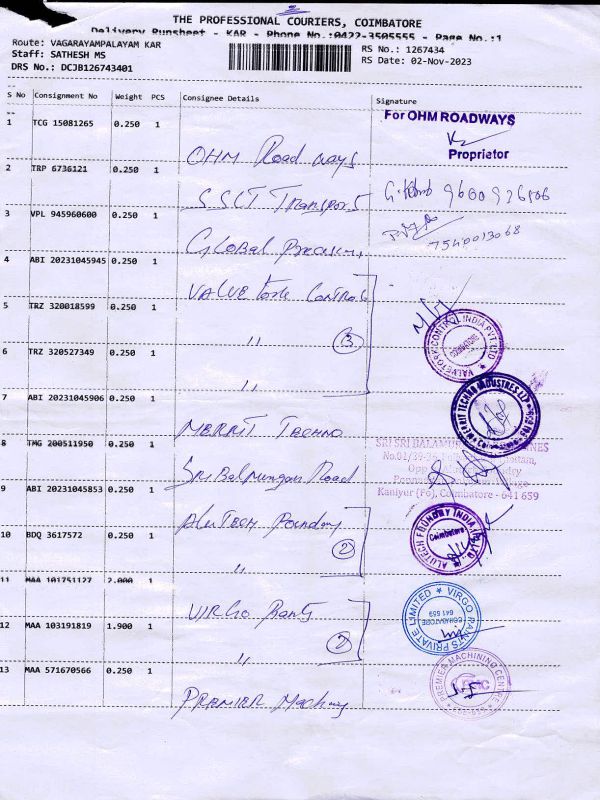 THE PROFESSIONAL COURIERS, COIMBATORE
Delivery Runsheet - KAR - Phone No.:0422-3505555 - Page No.:1
Route: VAGARAYAMPALAYAM KAR
RS No.: 1267434
Staff: SATHESH MS
RS Date: 02-Nov-2023
DRS No.: DCJB126743401
S No Consignment No Weight PCS Consignee Details Signature
1 TCG 15081265 0.250 1 OHM Road ways
For OHM ROADWAYS
Proprietor
2 TRP 6736121 0.250 1 SSLT Transport
9600926506
3 VPL 945960600 0.250 1 Global Precision
7540013068
4 ABI 20231045945 0.250 1 VALVE Tork Controls
5 TRZ 320018599 0.250 1 "
3
VALVETORK CONTROL INDIA PVT LTD
COIMBATORE
6 TRZ 320527349 0.250 1 "
7 ABI 20231045906 0.250 1 MERRIT Techno
MERRIT TECHNO INDUSTRIES LLP
8 TMG 200511950 0.250 1 Sri Balmurugan Road
SRI SRI BALAMURUGAN
Kaniyur (Po), Coimbatore - 641 659
9 ABI 20231045853 0.250 1 ALUTECH Foundry
10 BDQ 3617572 0.250 1 "
2
ALUTECH FOUNDRY INDIA
Coimbatore
11 MAA 101751127 2.000 1 VIRGO Rants
VIRGO RANTS PRIVATE LIMITED
COIMBATORE
641 659
12 MAA 103191819 1.900 1 "
2
13 MAA 571670566 0.250 1 PREMIER Machining
PREMIER MACHINING CENTRE
PMC